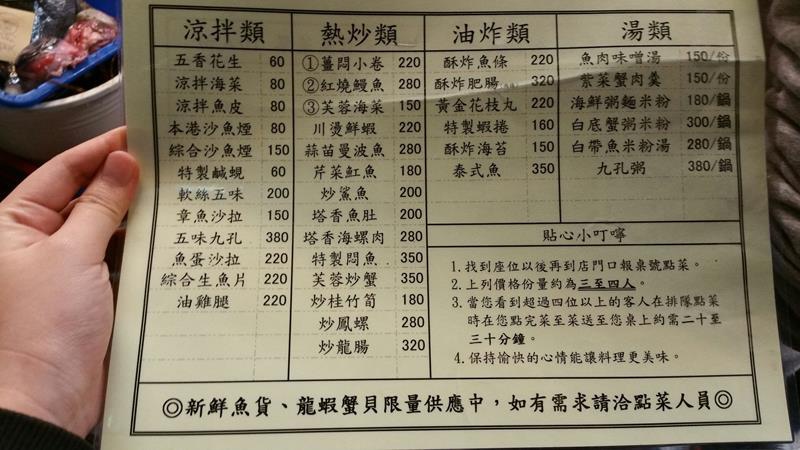 涼拌類
五香花生 60
涼拌海菜 80
涼拌魚皮 80
本港沙魚煙 80
綜合沙魚煙 150
特製鹹蜆 60
軟絲五味 200
章魚沙拉 150
五味九孔 380
魚蛋沙拉 220
綜合生魚片 220
油雞腿 220
熱炒類
①薑悶小卷 220
②紅燒鰻魚 280
③芙蓉海菜 150
川燙鮮蝦 220
蒜苗曼波魚 280
芹菜魟魚 180
炒鯊魚 200
塔香魚肚 200
塔香海螺肉 280
特製悶魚 350
芙蓉炒蟹 350
炒桂竹筍 180
炒鳳螺 280
炒龍腸 320
油炸類
酥炸魚條 220
酥炸肥腸 320
黃金花枝丸 220
特製蝦捲 160
酥炸海苔 150
泰式魚 350
湯類
魚肉味噌湯 150/份
紫菜蟹肉羹 150/份
海鮮粥麵米粉 180/鍋
白底蟹粥米粉 300/鍋
白帶魚米粉湯 280/鍋
九孔粥 380/鍋
貼心小叮嚀
1.找到座位以後再到店門口報桌號點菜。
2.上列價格份量約為三至四人。
3.當您看到超過四位以上的客人在排隊點菜
時在您點完菜至菜送至您桌上約需二十至
三十分鐘。
4.保持愉快的心情能讓料理更美味。
◎新鮮魚貨、龍蝦蟹貝限量供應中，如有需求請洽點菜人員◎